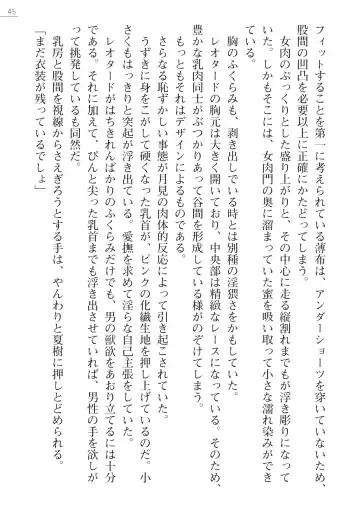 45
フィットすることを第一に考えられている薄布は、アンダーショーツを穿いていないため、
股間の凹凸を必要以上に正確にかたどってしまう。
女肉のぷっくりとした盛り上がりと、その中心に走る縦割れまでもが浮き彫りになって
いた。しかもそこには、女肉門の奥に溜まっていた蜜を吸い取って小さな濡れ染みができ
ている。
胸のふくらみも、剥き出している時とは別種の淫猥さをかもしていた。
レオタードの胸元は大きく開いており、中央部は精緻なレースになっている。そのため、
豊かな乳肉同士がぶつかりあって谷間を形成している様がのぞけてしまう。
もっともそれはデザインによるものである。
さらなる恥ずかしい事態が月見の肉体的反応によって引き起こされていた。
うずきに身をこがして硬くなった乳首が、ピンクの化繊生地を押し上げているのだ。小
さくもはっきりと突起が浮き出ている。愛撫を求めて淫らな自己主張をしていた。
レオタードがはちきれんばかりのふくらみだけでも、男の獣欲をあおり立てるには十分
である。それに加えて、ぴんと尖った乳首までも浮き出させていれば、男性の手を欲しが
って挑発しているも同然だ。
乳房と股間を視線からさえぎろうとする手は、やんわりと夏樹に押しとどめられる。
「まだ衣装が残っているでしょ」